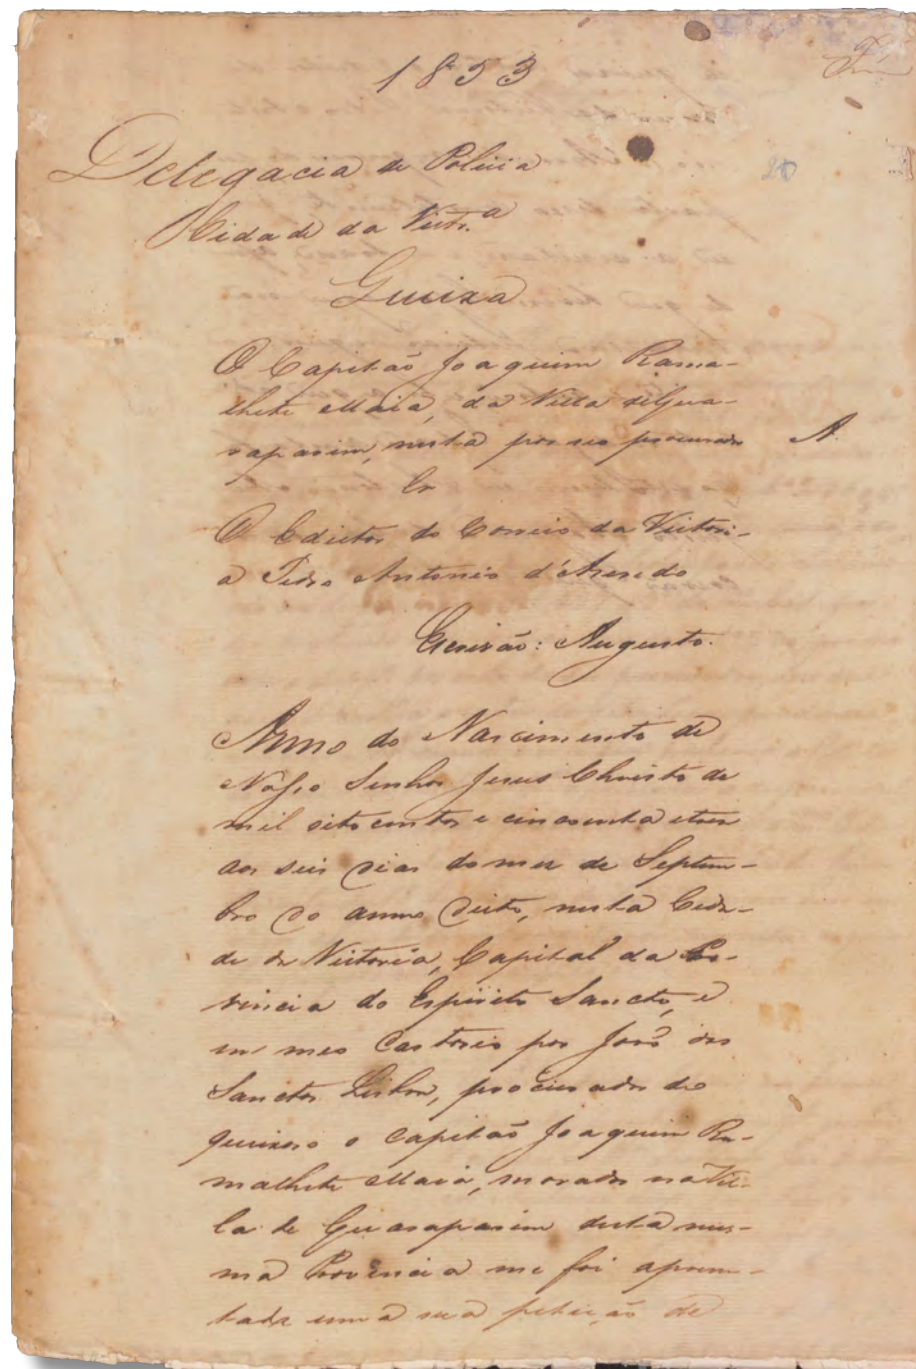 1853
20
Delegacia de Policia
Cidade da Victr.ª
Queixa
O Capitão Joaquim Rama-
lhete Maia, da Villa de Gua-
raparim, nesta por seo procurador A.
Cr
O Edictor do Correio da Victori-
a Pedro Antonio d'Azeredo
Escrivão: Augusto.
Anno do Nascimento de
Nosso Senhor Jesus Christo de
mil oito centos e cincoenta e tres
aos seis dias do mez de Septem-
bro do anno dicto, nesta Cida-
de da Victoria, Capital da Pro-
vincia do Espirito Sancto, e
em meo Cartorio por José dos
Sanctos Lisboa, procurador do
queixoso o Capitão Joaquim Ra-
malhete Maia, morador na Vil-
la de Guaraparim desta mes-
ma Provincia me foi apresen-
tada uma sua petição de